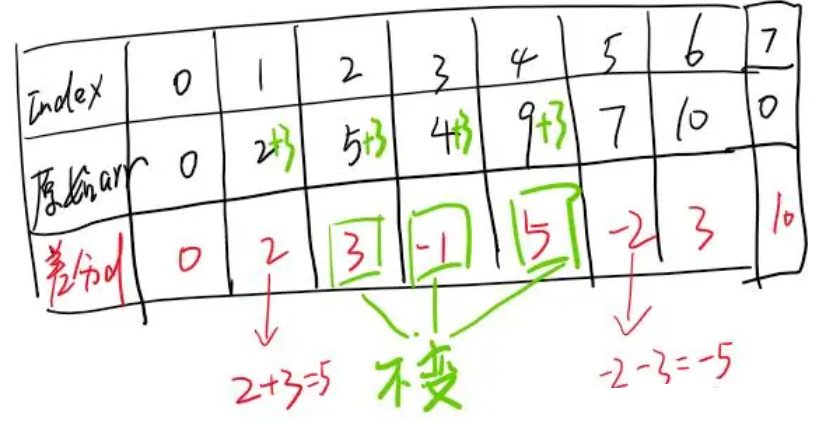 Index 0 1 2 3 4 5 6 7
原始arr 0 2+3 5+3 4+3 9+3 7 10 0
差分d 0 2 3 -1 5 -2 3 10
2+3=5 不变 -2-3=-5